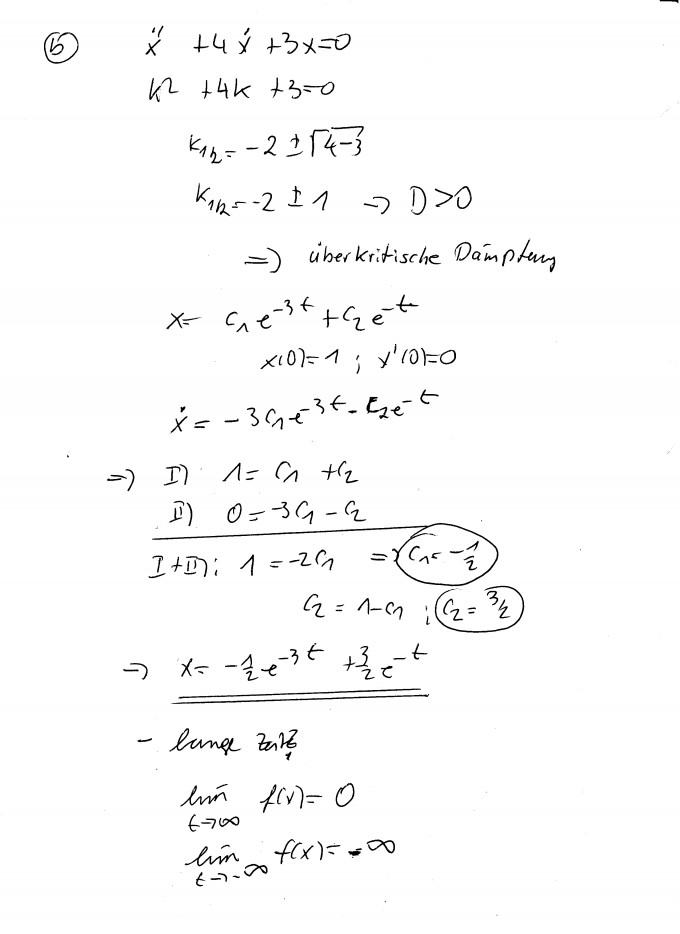 b ẍ + 4ẋ + 3x = 0
k² + 4k + 3 = 0
k₁/₂ = -2 ± √4-3
k₁/₂ = -2 ± 1 → D > 0
=> überkritische Dämpfung
x = C₁e^-3t + C₂e^-t
x(0) = 1 ; x'(0) = 0
ẋ = -3C₁e^-3t - C₂e^-t
=> I) 1 = C₁ + C₂
II) 0 = -3C₁ - C₂
I+II): 1 = -2C₁ => C₁ = -1/2
C₂ = 1 - C₁ ; C₂ = 3/2
→ x = -1/2 e^-3t + 3/2 e^-t
- lange
lim t→∞ f(x) = 0
lim t→-∞ f(x) = -∞